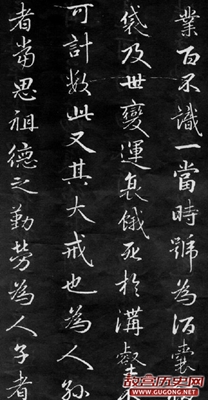 業百不識一當時號為酒囊
袋及世變運衰餓死於溝壑不
可計數此又其大戒也為人孫
者當思祖德之勤勞為人子者
故宫历史网
www.gugong.net